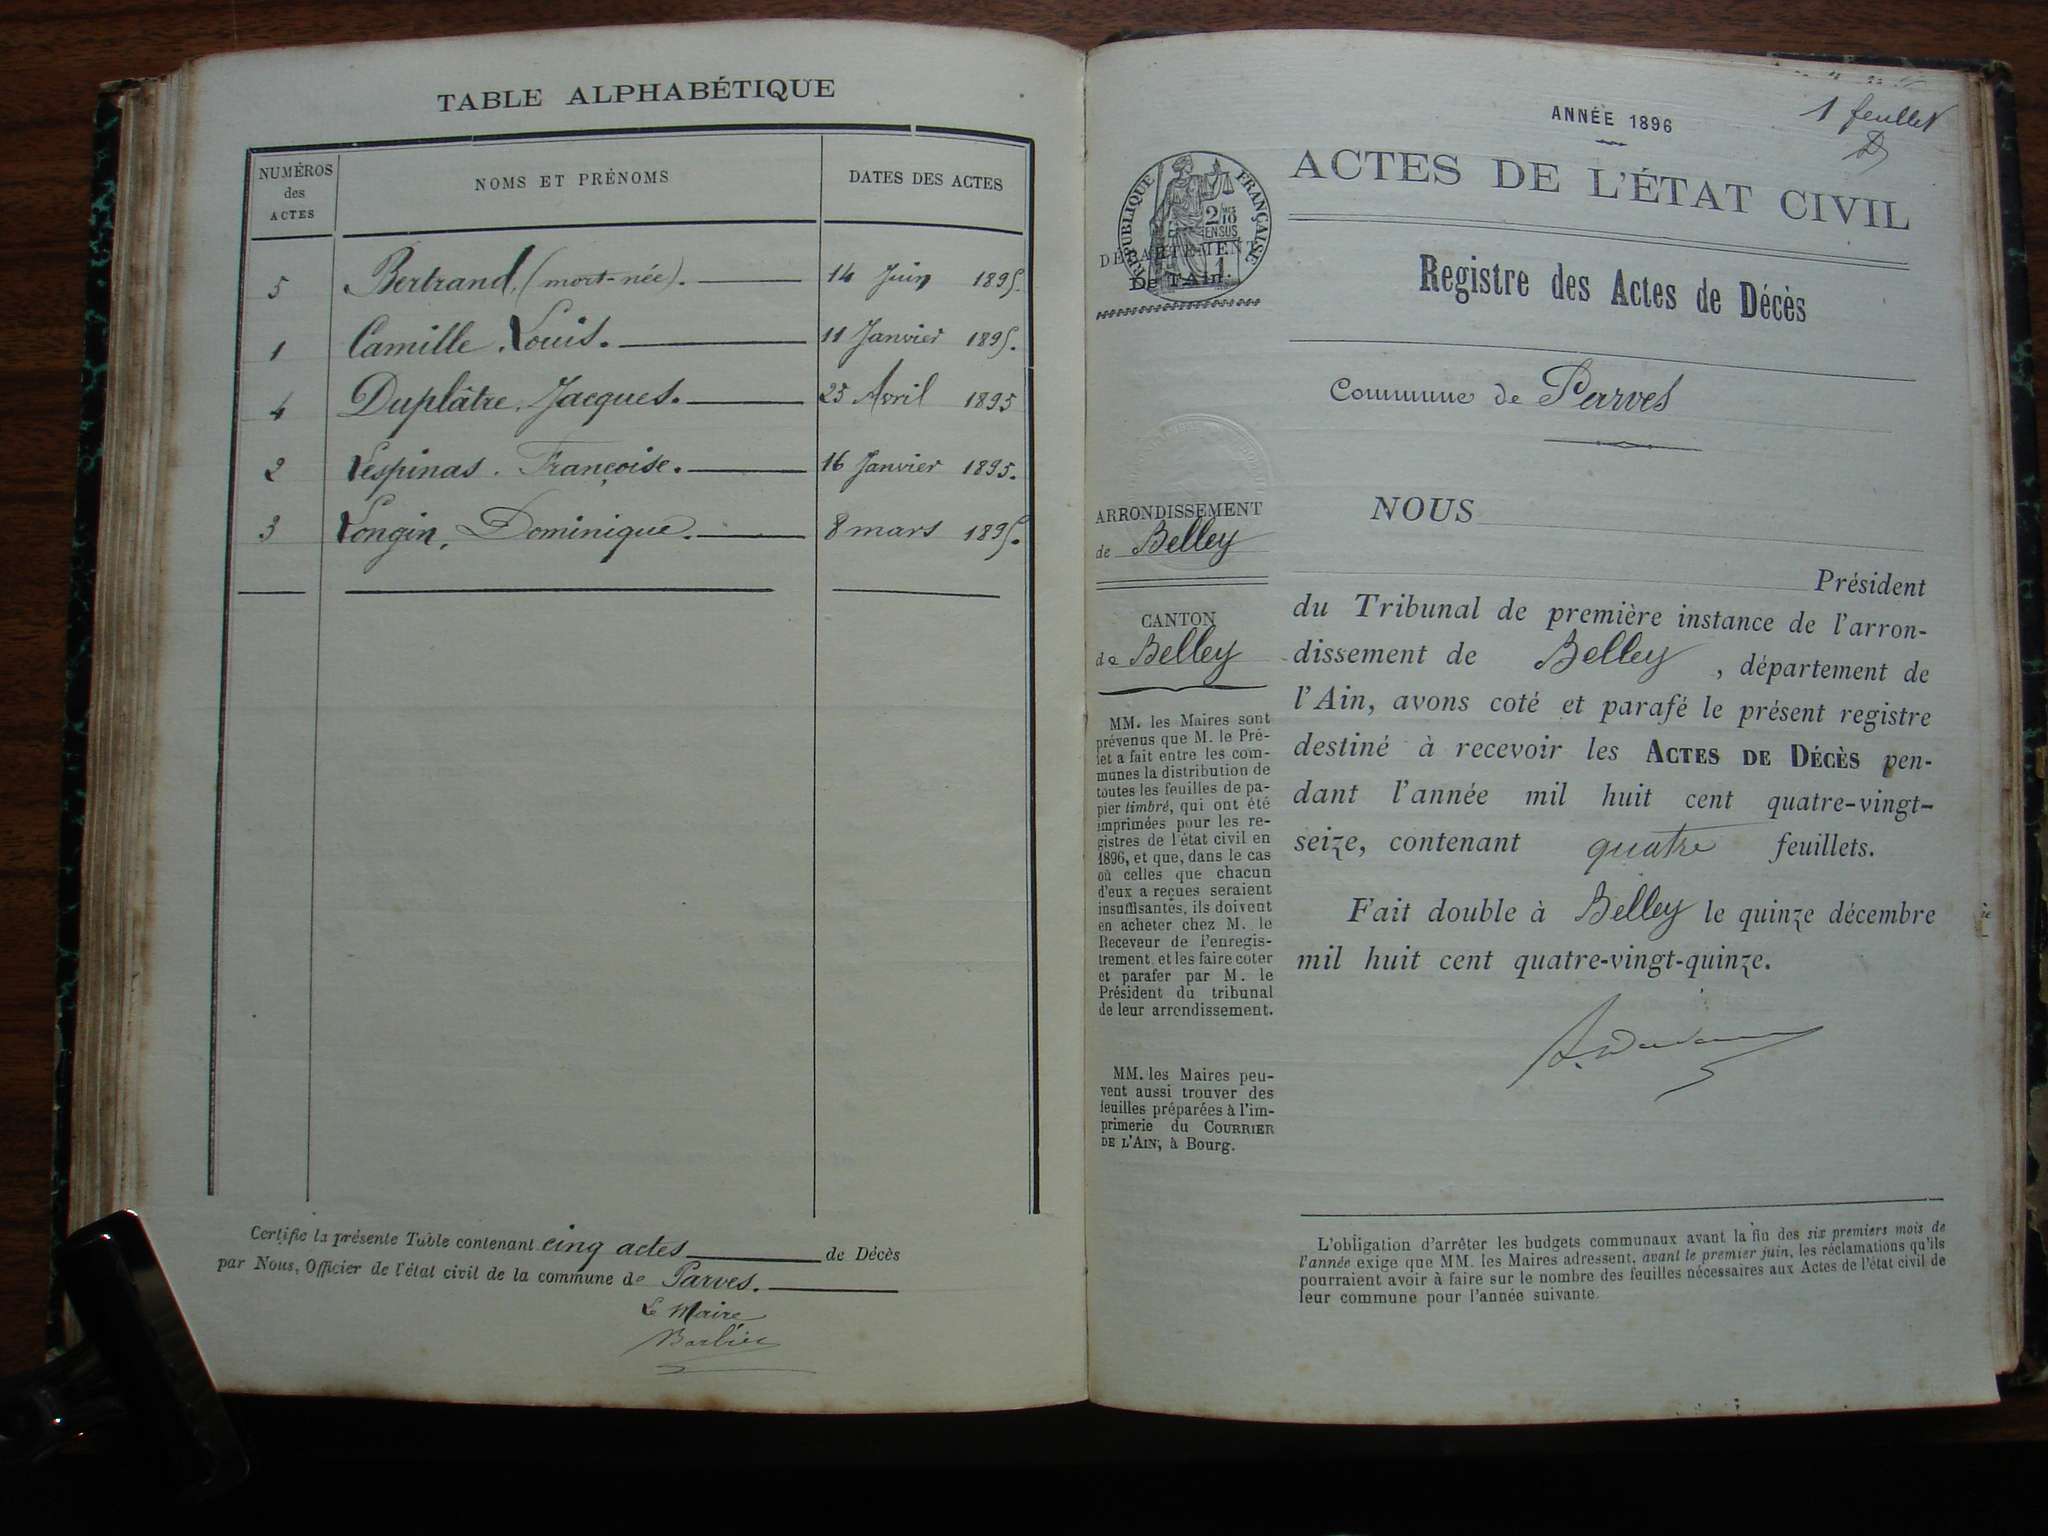 TABLE ALPHABÉTIQUE
NUMÉROS des ACTES NOMS ET PRÉNOMS DATES DES ACTES
5 Bertrand, (mort-née). 14 Juin 1895.
1 Camille, Louis. 11 Janvier 1895.
4 Duplâtre, Jacques. 25 Avril 1895
2 Lespinas. Françoise. 16 Janvier 1895.
3 Longin, Dominique. 8 mars 1895.
Certifie la présente Table contenant cinq actes de Décès
par Nous, Officier de l'état civil de la commune de Parves.
Le Maire
Barbier
1 feuillet
ANNÉE 1896
ACTES DE L'ÉTAT CIVIL
RÉPUBLIQUE FRANÇAISE
2/10 EN SUS
1
DÉPARTEMENT
De l'Ain.
Registre des Actes de Décès
Commune de Parves
ARRONDISSEMENT
de Belley
CANTON
de Belley
MM. les Maires sont
prévenus que M. le Pré-
fet a fait entre les com-
munes la distribution de
toutes les feuilles de pa-
pier timbré, qui ont été
imprimées pour les re-
gistres de l'état civil en
1896, et que, dans le cas
où celles que chacun
d'eux a reçues seraient
insuffisantes, ils doivent
en acheter chez M. le
Receveur de l'enregis-
trement et les faire coter
et parafer par M. le
Président du tribunal
de leur arrondissement.
MM. les Maires peu-
vent aussi trouver des
feuilles préparées à l'im-
primerie du COURRIER
DE L'AIN, à Bourg.
NOUS
Président
du Tribunal de première instance de l'arron-
dissement de Belley, département de
l'Ain, avons coté et parafé le présent registre
destiné à recevoir les ACTES DE DÉCÈS pen-
dant l'année mil huit cent quatre-vingt-
seize, contenant quatre feuillets.
Fait double à Belley le quinze décembre
mil huit cent quatre-vingt-quinze.
L'obligation d'arrêter les budgets communaux avant la fin des six premiers mois de
l'année exige que MM. les Maires adressent, avant le premier juin, les réclamations qu'ils
pourraient avoir à faire sur le nombre des feuilles nécessaires aux Actes de l'état civil de
leur commune pour l'année suivante.